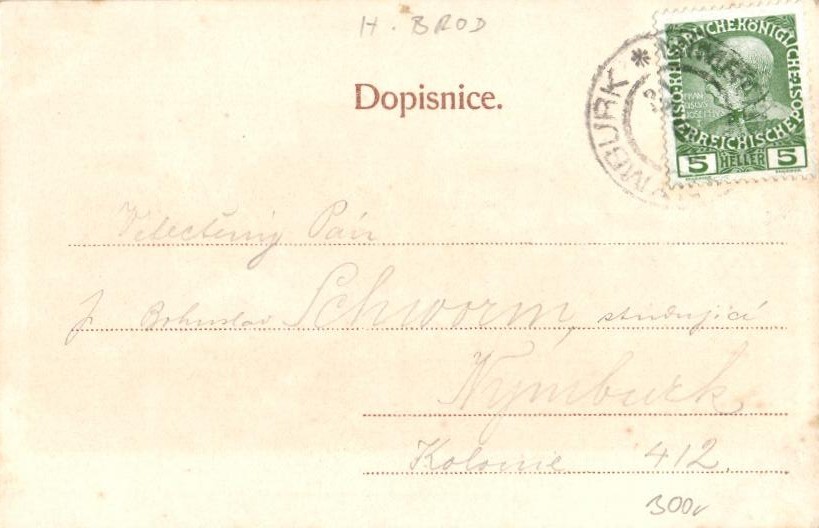 H. BROD
Dopisnice.
KAISERLICHE KÖNIGLICHE
ÖSTERREICHISCHE POST
FRANZ
JOSEF
5 HELLER 5
NYMBURK *
Velectěný Pán
p. Bohuslav Schworm, studující
Nymburk
Kolonie 412.
300